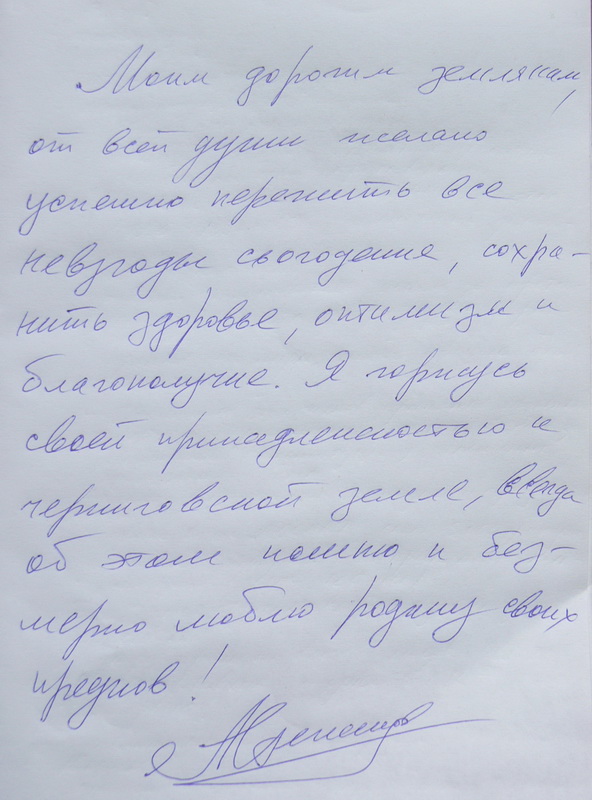 Моим дорогим землякам,
от всей души желаю
успешно пережить все
невзгоды сьогодення, сохра-
нить здоровье, оптимизм и
благополучие. Я горжусь
своей принадлежностью к
черниговской земле, всегда
об этом помню и без-
мерно люблю родину своих
предков!